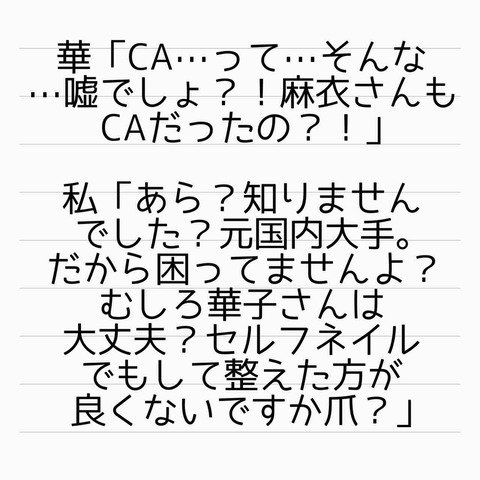 華「CA…って…そんな
…嘘でしょ？！麻衣さんも
CAだったの？！」
私「あら？知りません
でした？元国内大手。
だから困ってませんよ？
むしろ華子さんは
大丈夫？セルフネイル
でもして整えた方が
良くないですか爪？」